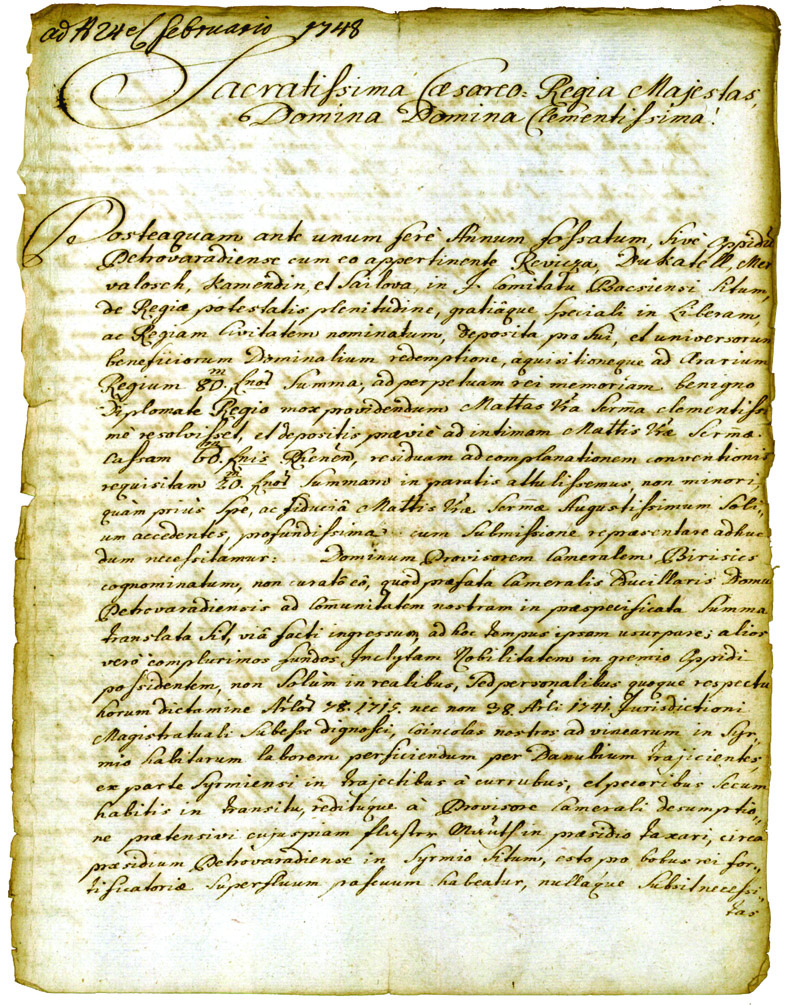 ad N 24 ex Februario 1748
Sacratissima Cæsareo-Regia Majestas,
Domina Domina Clementissima!
Posteaquam ante unum ferè Annum fossatum, Sivè Oppidū
Petrovaradiense cum eo appertinente Revicza, Dukatell, Mer
valosch, Kamendin, et Sailova, in I. Comitatu Bacsiensi Situm,
de Regiæ potestatis plenitudine, gratiâque speciali in Liberam,
ac Regiam Civitatem nominatum, deposita pro Sui, et universorum
beneficiorum Dominalium redemptione, aquisitioneque ad Ærarium
Regium 80.m fnor̄ Summa, ad perpetuam rei memoriam benigno
Diplomate Regio mox providendum Mattas Vrā Serm̄a clementissi
mè resolvisset, et depositis præviè ad intimam Mattis Vræ Serm̄æ.
Cassam 60.m fnis Rhenen̄, residuam ad complanationem conventionis
requisitam 20.m fnor̄ Summam in paratis attulissemus, non minori,
quàm priùs Spe, ac fiduciâ Mattis Vræ Serm̄æ Augustissimum Soli-
um accedentes, profundissima cum Submissione repræsentare adhuc
dum necessitamur: Dominum Provisorem Cameralem Birisics
cognominatum, non curato eô, quòd præfata Cameralis Educillaris Domus
Petrovaradiensis ad Comunitatem nostram in præspecificata Summa
translata Sit, viâ facti ingressum ad hoc tempus ipsam usurpare; alios
verò complurimos fundos Inclytam Nobilitatem in gremio Oppidi
possidentem, non Solùm in realibus, Sed personalibus quoque respectu
horum dictamine Arlor̄ 78. 1715. nec non 38. Arli 1741. Jurisdictioni
Magistratuali Subesse dignosci, Coincolas nostros ad vinearum in Syr-
mio habitarum laborem perficiendum per Danubium trajicientes,
ex parte Syrmiensi in trajectibus à curribus, et pecoribus Secum
habitis in transitu, redituque à Provisore Camerali desumptio-
ne prætensivi cujuspiam in præsidio taxari, circa
præsidium Petrovaradiense in Syrmio Situm, esto pro bobus rei for-
tificatoriæ Superfluum pascuum habeatur, nullaque Subsit necessi-
tas